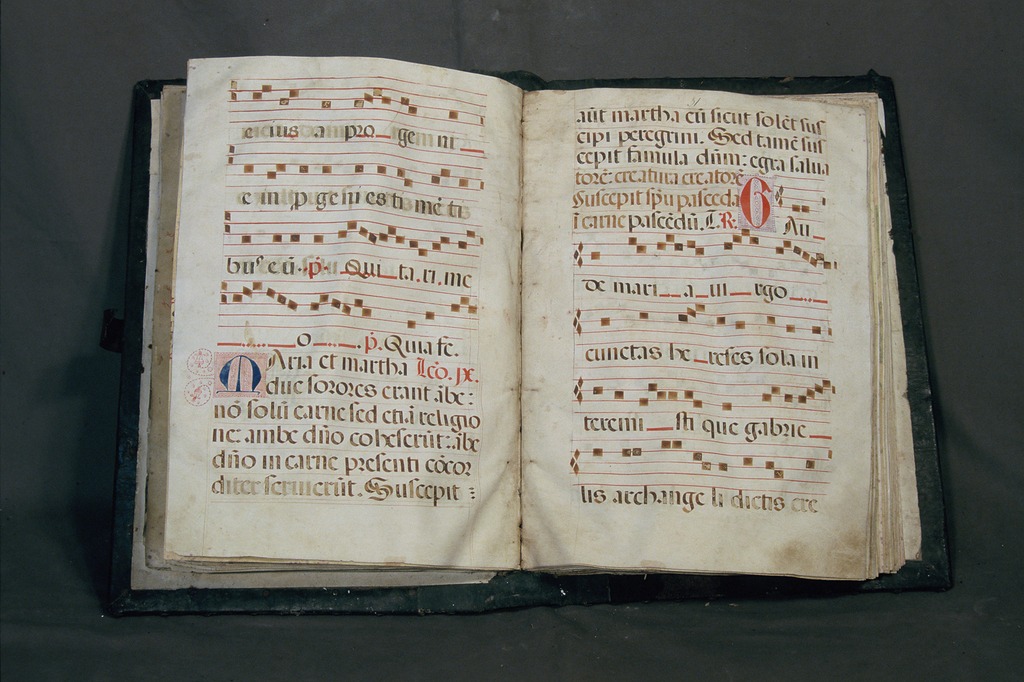 eius am pro gem ni
e in pige ni es ti mē tis
bus eū. p̄. Qui ta.ri.me
o p̄. Quia fe.
Aria et martha Leo. ix.
due sorores erant ābe:
nō solū carne sed etiā religio
ne: ambe dn̄o coheserūt: ābe
dn̄o in carne presenti cōcor
diter seruierūt. Suscepit:
aūt martha eū sicut solēt sus
cipi peregrini. Sed tamē sus
cepit famula dn̄m: egra salua
torē: creatura creatorē
Suscepit spū pasceda
ī carne pascēdū. R. G
Au
de mari a ui rgo
cunctas he reses sola in
teremi sti que gabrie
lis archange li dictis cre